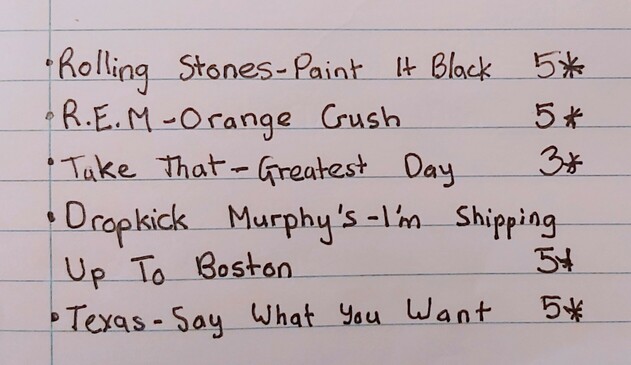 • Rolling Stones - Paint It Black 5*
• R.E.M - Orange Crush 5*
• Take That - Greatest Day 3*
• Dropkick Murphy's - I'm Shipping
Up To Boston 5*
• Texas - Say What You Want 5*